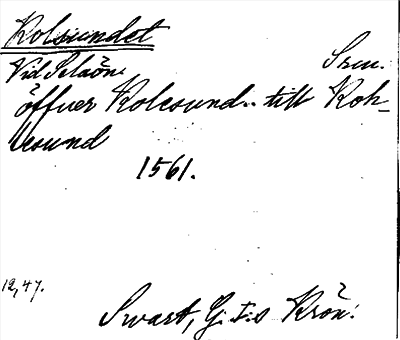 Kolsundet
Vid Selaön. Srm.
öffuer Kolesund.. till Koh-
lesund
1561.
12,47.
Swart, G. I:s Krön.